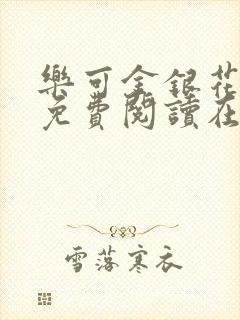 樂可金銀花
免費閱讀在
雪落寒衣